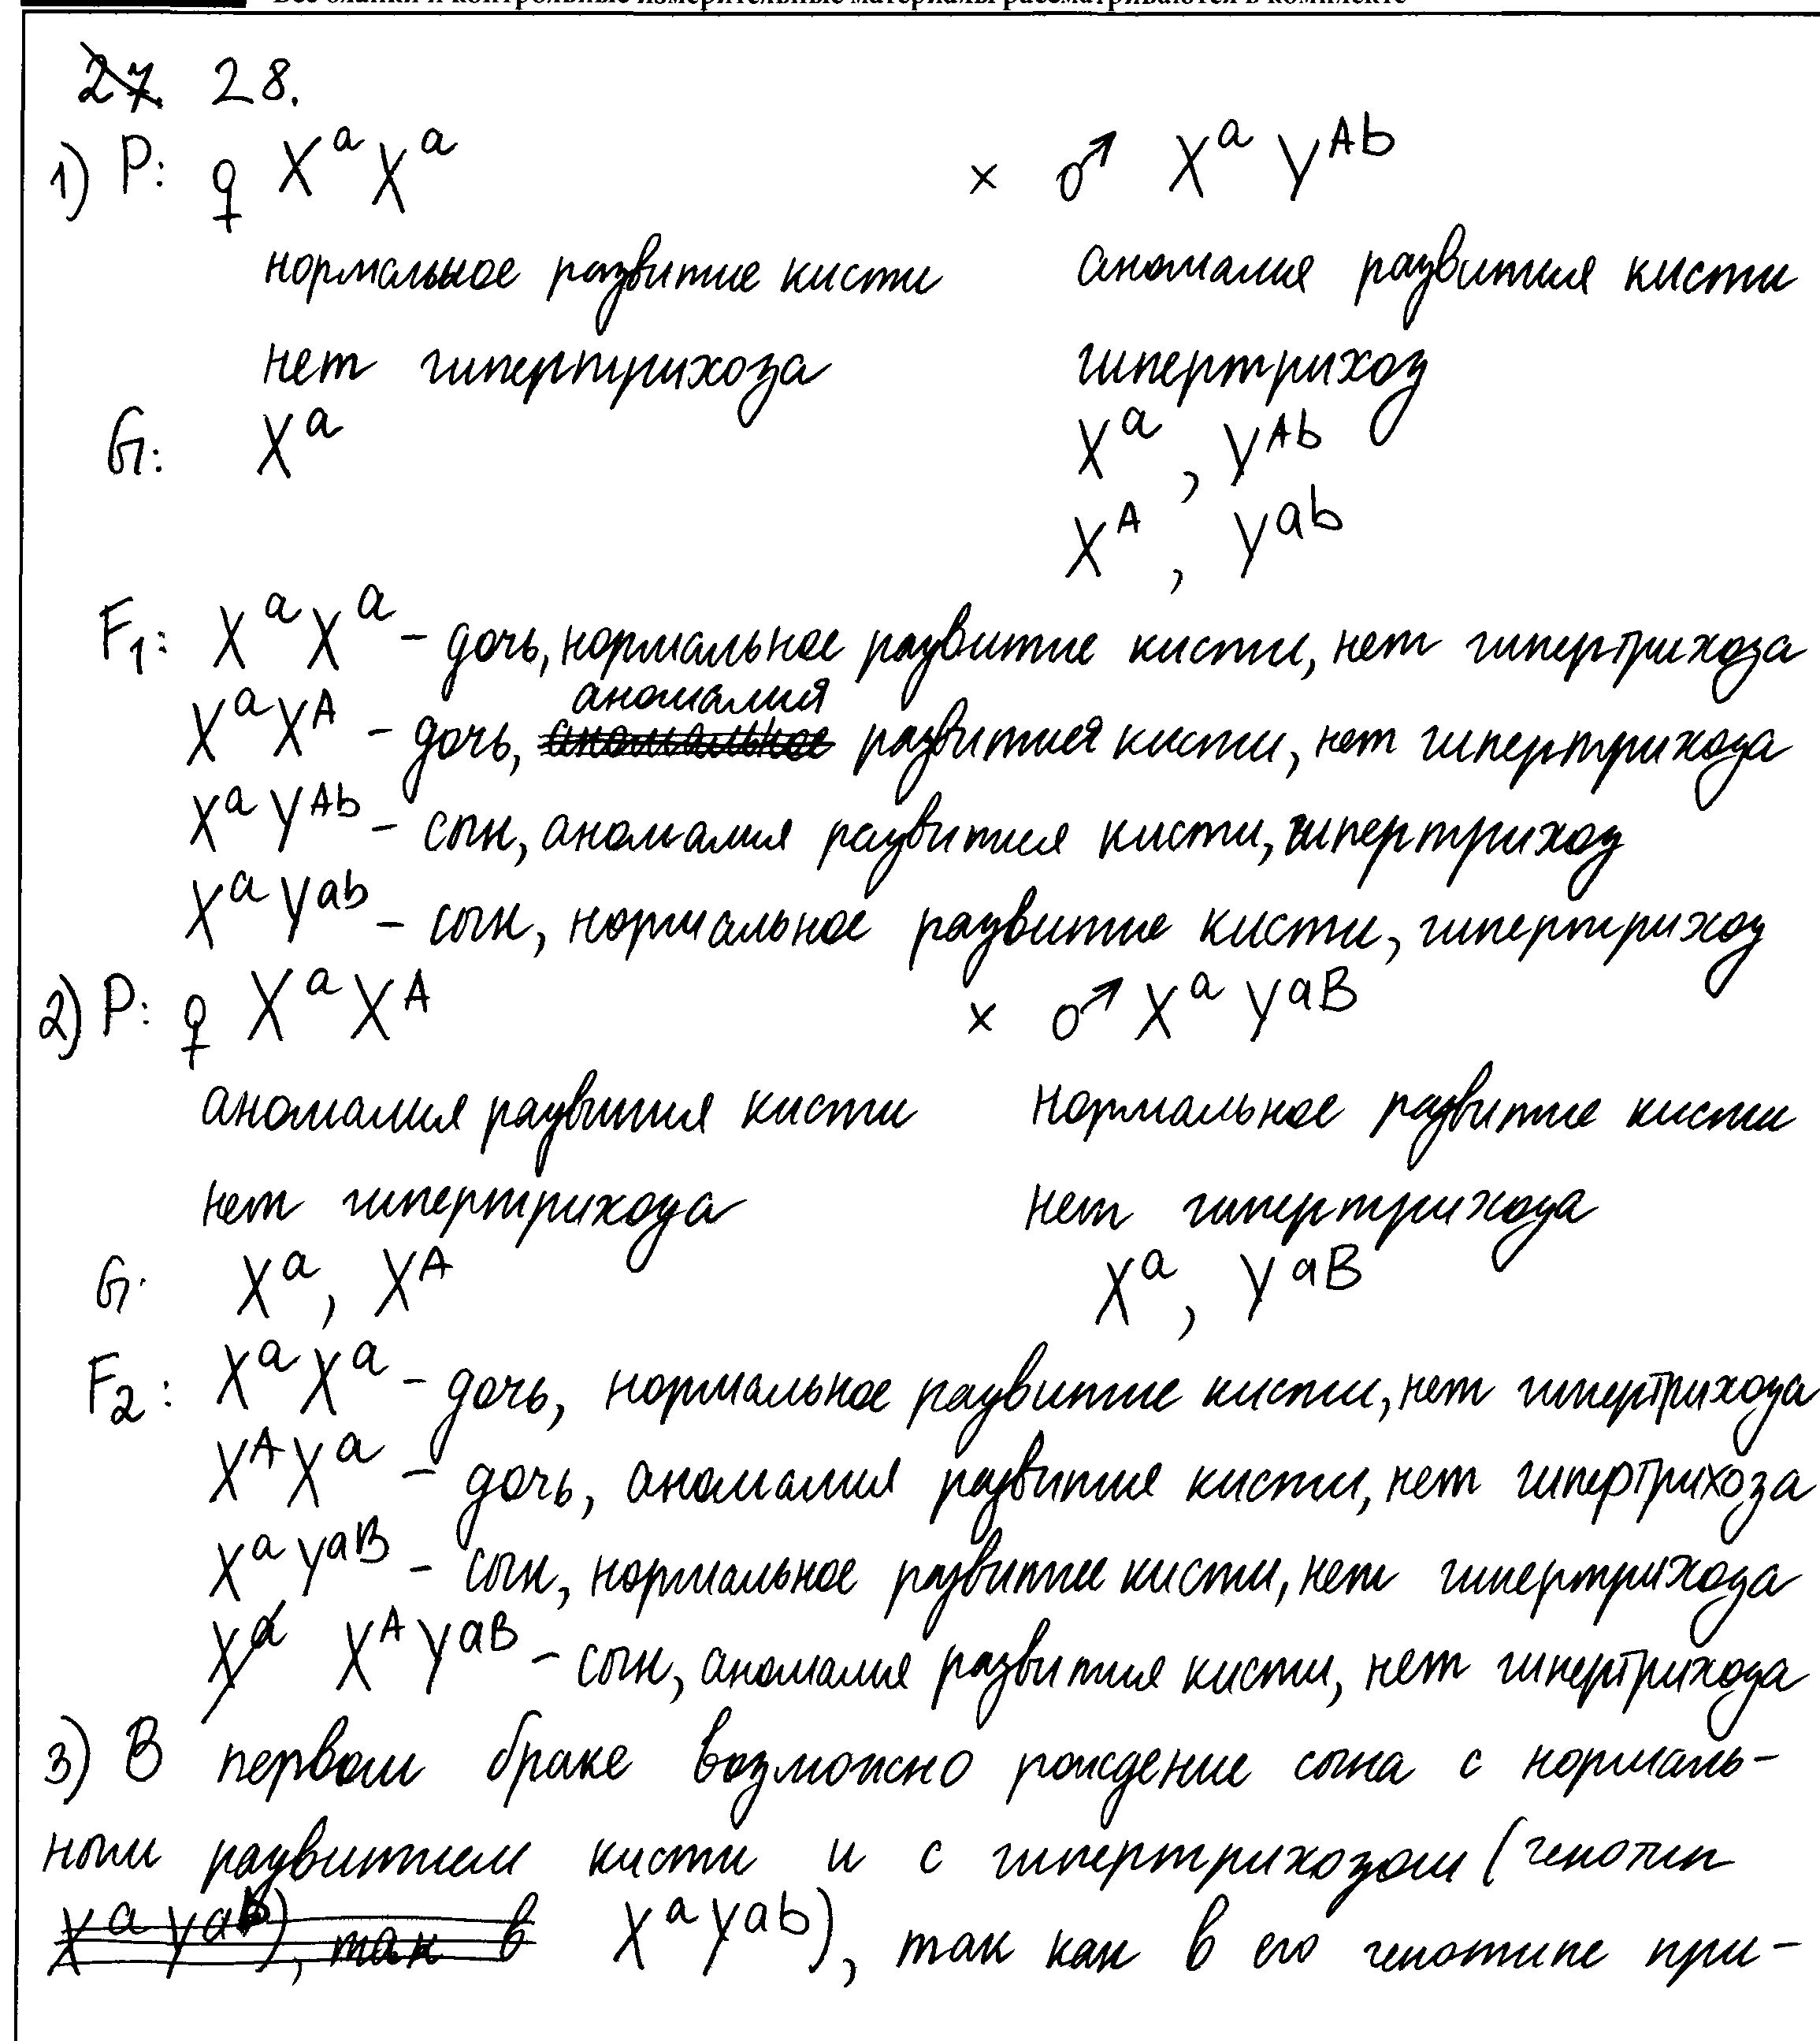 Все бланки и контрольные измерительные материалы рассматриваются в комплекте
27. 28.
1) P: ♀ XᵃXᵃ × ♂ XᵃYᴬb
нормальное развитие кисти аномалия развития кисти
нет гипертрихоза гипертрихоз
G: Xᵃ Xᵃ, Yᴬb
Xᴬ, Yᵃb
F₁: XᵃXᵃ – дочь, нормальное развитие кисти, нет гипертрихоза
аномалия
XᵃXᴬ – дочь, аномальное развития кисти, нет гипертрихоза
XᵃYᴬb – сын, аномалия развития кисти, гипертрихоз
XᵃYᵃb – сын, нормальное развитие кисти, гипертрихоз
2) P: ♀ XᵃXᴬ × ♂ XᵃYᵃB
аномалия развития кисти нормальное развитие кисти
нет гипертрихоза нет гипертрихоза
G: Xᵃ, Xᴬ Xᵃ, YᵃB
F₂: XᵃXᵃ – дочь, нормальное развитие кисти, нет гипертрихоза
XᴬXᵃ – дочь, аномалия развития кисти, нет гипертрихоза
XᵃYᵃB – сын, нормальное развитие кисти, нет гипертрихоза
Xᵃ XᴬYᵃB – сын, аномалия развития кисти, нет гипертрихоза
3) В первом браке возможно рождение сына с нормаль-
ным развитием кисти и с гипертрихозом (генотип
XᵃYᵃb), так в XᵃYᵃb), так как в его генотипе при-